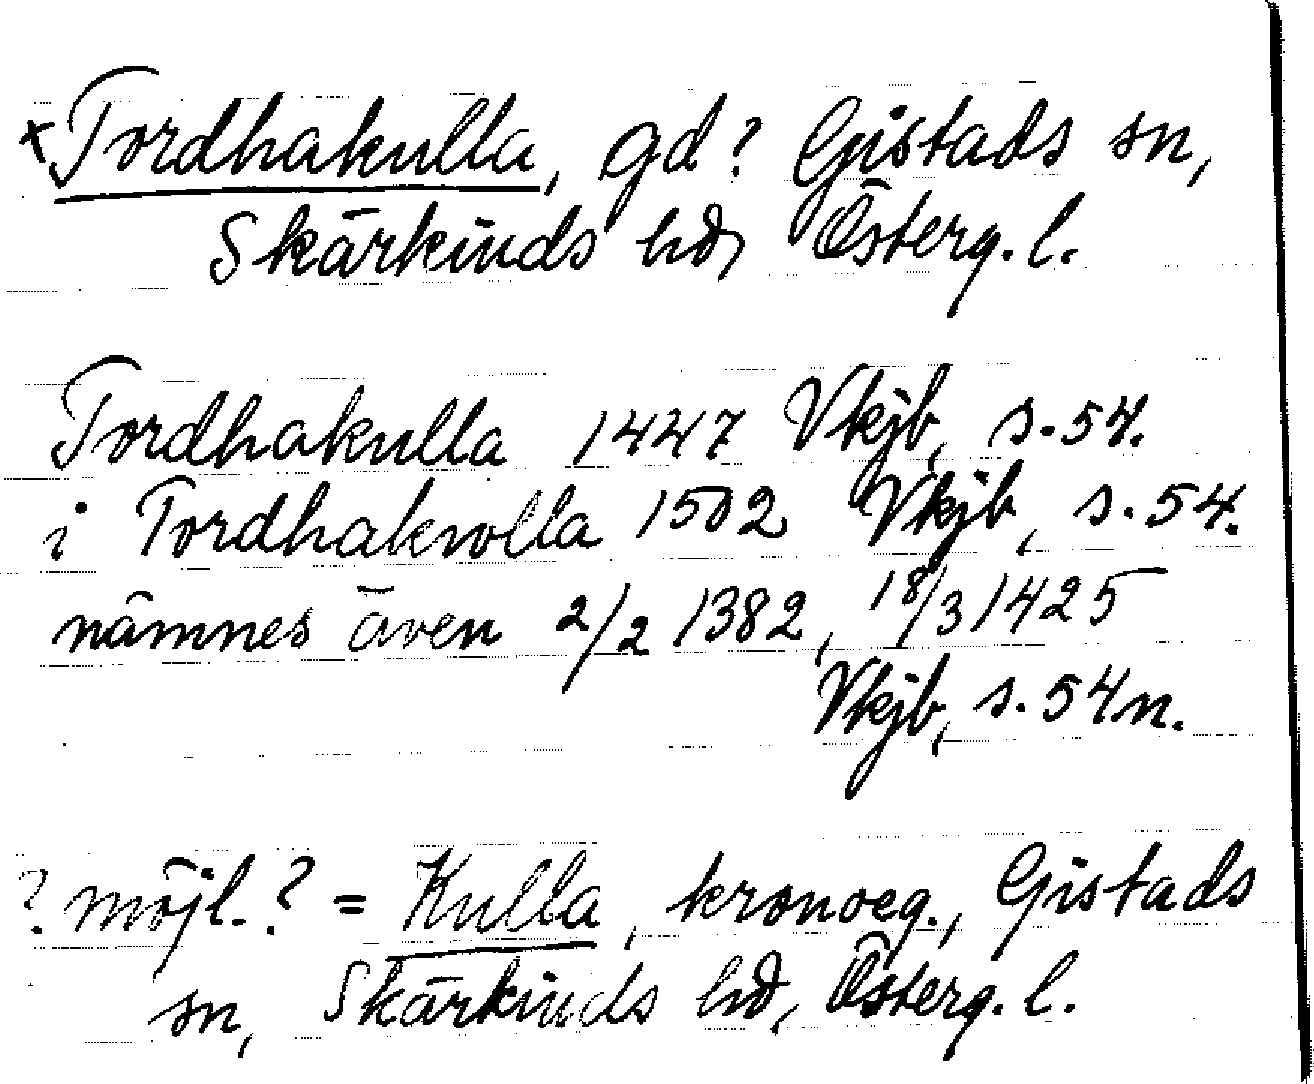 ×Tordhakulla, gd? Gistads sn,
Skärkinds hd, Österg. l.
Tordhakulla 1447 Vkjb, s. 54.
i Tordhakwlla 1502 Vkjb, s. 54.
nämnes även 2/2 1382, 18/3 1425
Vkjb, s. 54 n.
? möjl.? = Kulla, kronoeg., Gistads
sn, Skärkinds hd, Österg. l.